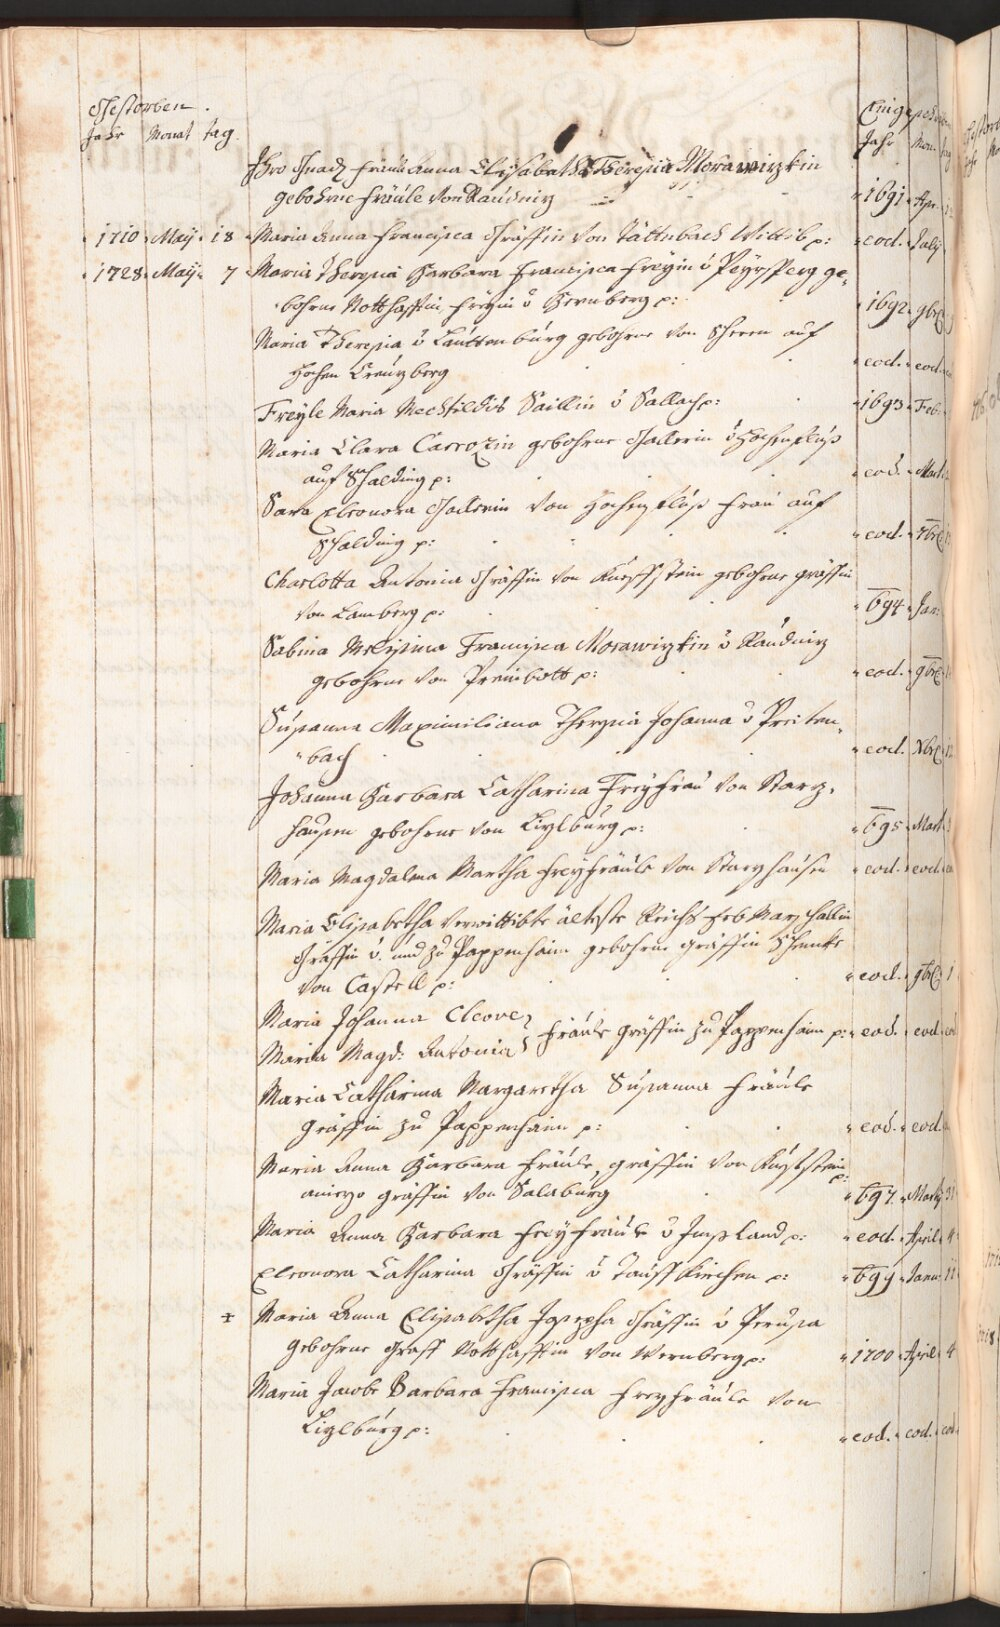 Gestorben.
Jahr Monat tag.
Einge
Jahr Mon.
Ihro Gnad Frau Anna Elisabetha Theresia Morawizkin
gebohrne Fräule von Raudniz 1691. Apr.
1710. May. 18 Maria Anna Francisca Gräffin von Tättnbach Wittib p: eod. July
1728. May. 7 Maria Theresia Barbara Francisca Freyin v Peyrsperg ge-
bohrne Notthafftin Freyin v Wernberg p: 1692. 9br
Maria Theresia v Lautternburg gebohrne von auf
Hochen Creuzberg eod. eod.
Freyle Maria Mechtildis Saillin v Sallach p: 1693. Feb.
Maria Clara Carrozin gebohrne v Hochenfluß
auf Schalding p: eod. Mart
Sara Eleonora von Hochenfluß Frau auf
Schalding p: eod. 7br
Charlotta Antonia Gräffin von Kueffstein gebohrne gräffin
von Lamberg p: 694. Jan:
Sabina Francisca Morawizkin v Raudniz
gebohrne von p: eod. 9br
Susanna Maximiliana Theresia Johanna v Preiten-
bach eod. Xbr
Johanna Barbara Catharina Freyfrau von Starz-
hausen gebohrne von Lizlburg p: 695. Mart
Maria Magdalena Martha Freyfräule von Starzhausen eod. eod.
Maria Elisabetha verwittibte älteste Reichs Erb Marschallin
Gräffin v. und zu Pappenheim gebohrne gräffin Schenkh
von Castell p: eod. 9br 1
Maria Johanna Cleove
Maria Magd: Antonia Fräule Gräffin zu Pappenheim p: eod. eod. eod
Maria Catharina Margaretha Susanna Fräule
Gräffin zu Pappenheim p: eod. eod.
Maria Anna Barbara Fräule, gräffin von Kuefstein
aniezo gräffin von Salaburg p: 697. Marty 31
Maria Anna Barbara Freyfräule v Imsland p: eod. April. 4
Eleonora Catharina Gräffin v Tauffkirchen p: 699. Janu: 11
+ Maria Anna Elisabetha Josepha Gräffin v Perusa
gebohrne Graff Notthafftin von Wernberg p: 1700. April. 4
Maria Jacobe Barbara Francisca Freyfräule von
Lizlburg p: eod. eod. eod